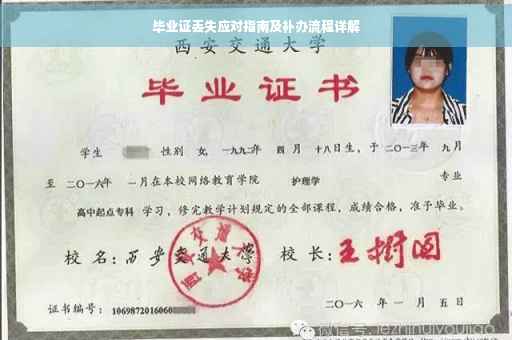 毕业证丢失应对指南及补办流程详解
西安交通大学
毕业证书
学生 性别 女,一九九二年 四 月 十八日生,于二〇一三年 九月
至 二〇一六年 一月在本校网络教育学院 护理学 专业
高中起点专科 学习,修完教学计划规定的全部课程,成绩合格,准予毕业。
校 名:西安交通大学 校 长:王树国
西安交通大学
证书编号:1069872016060
二〇一六 年 一 月 五 日
微信号:jezhinuiyoujiao